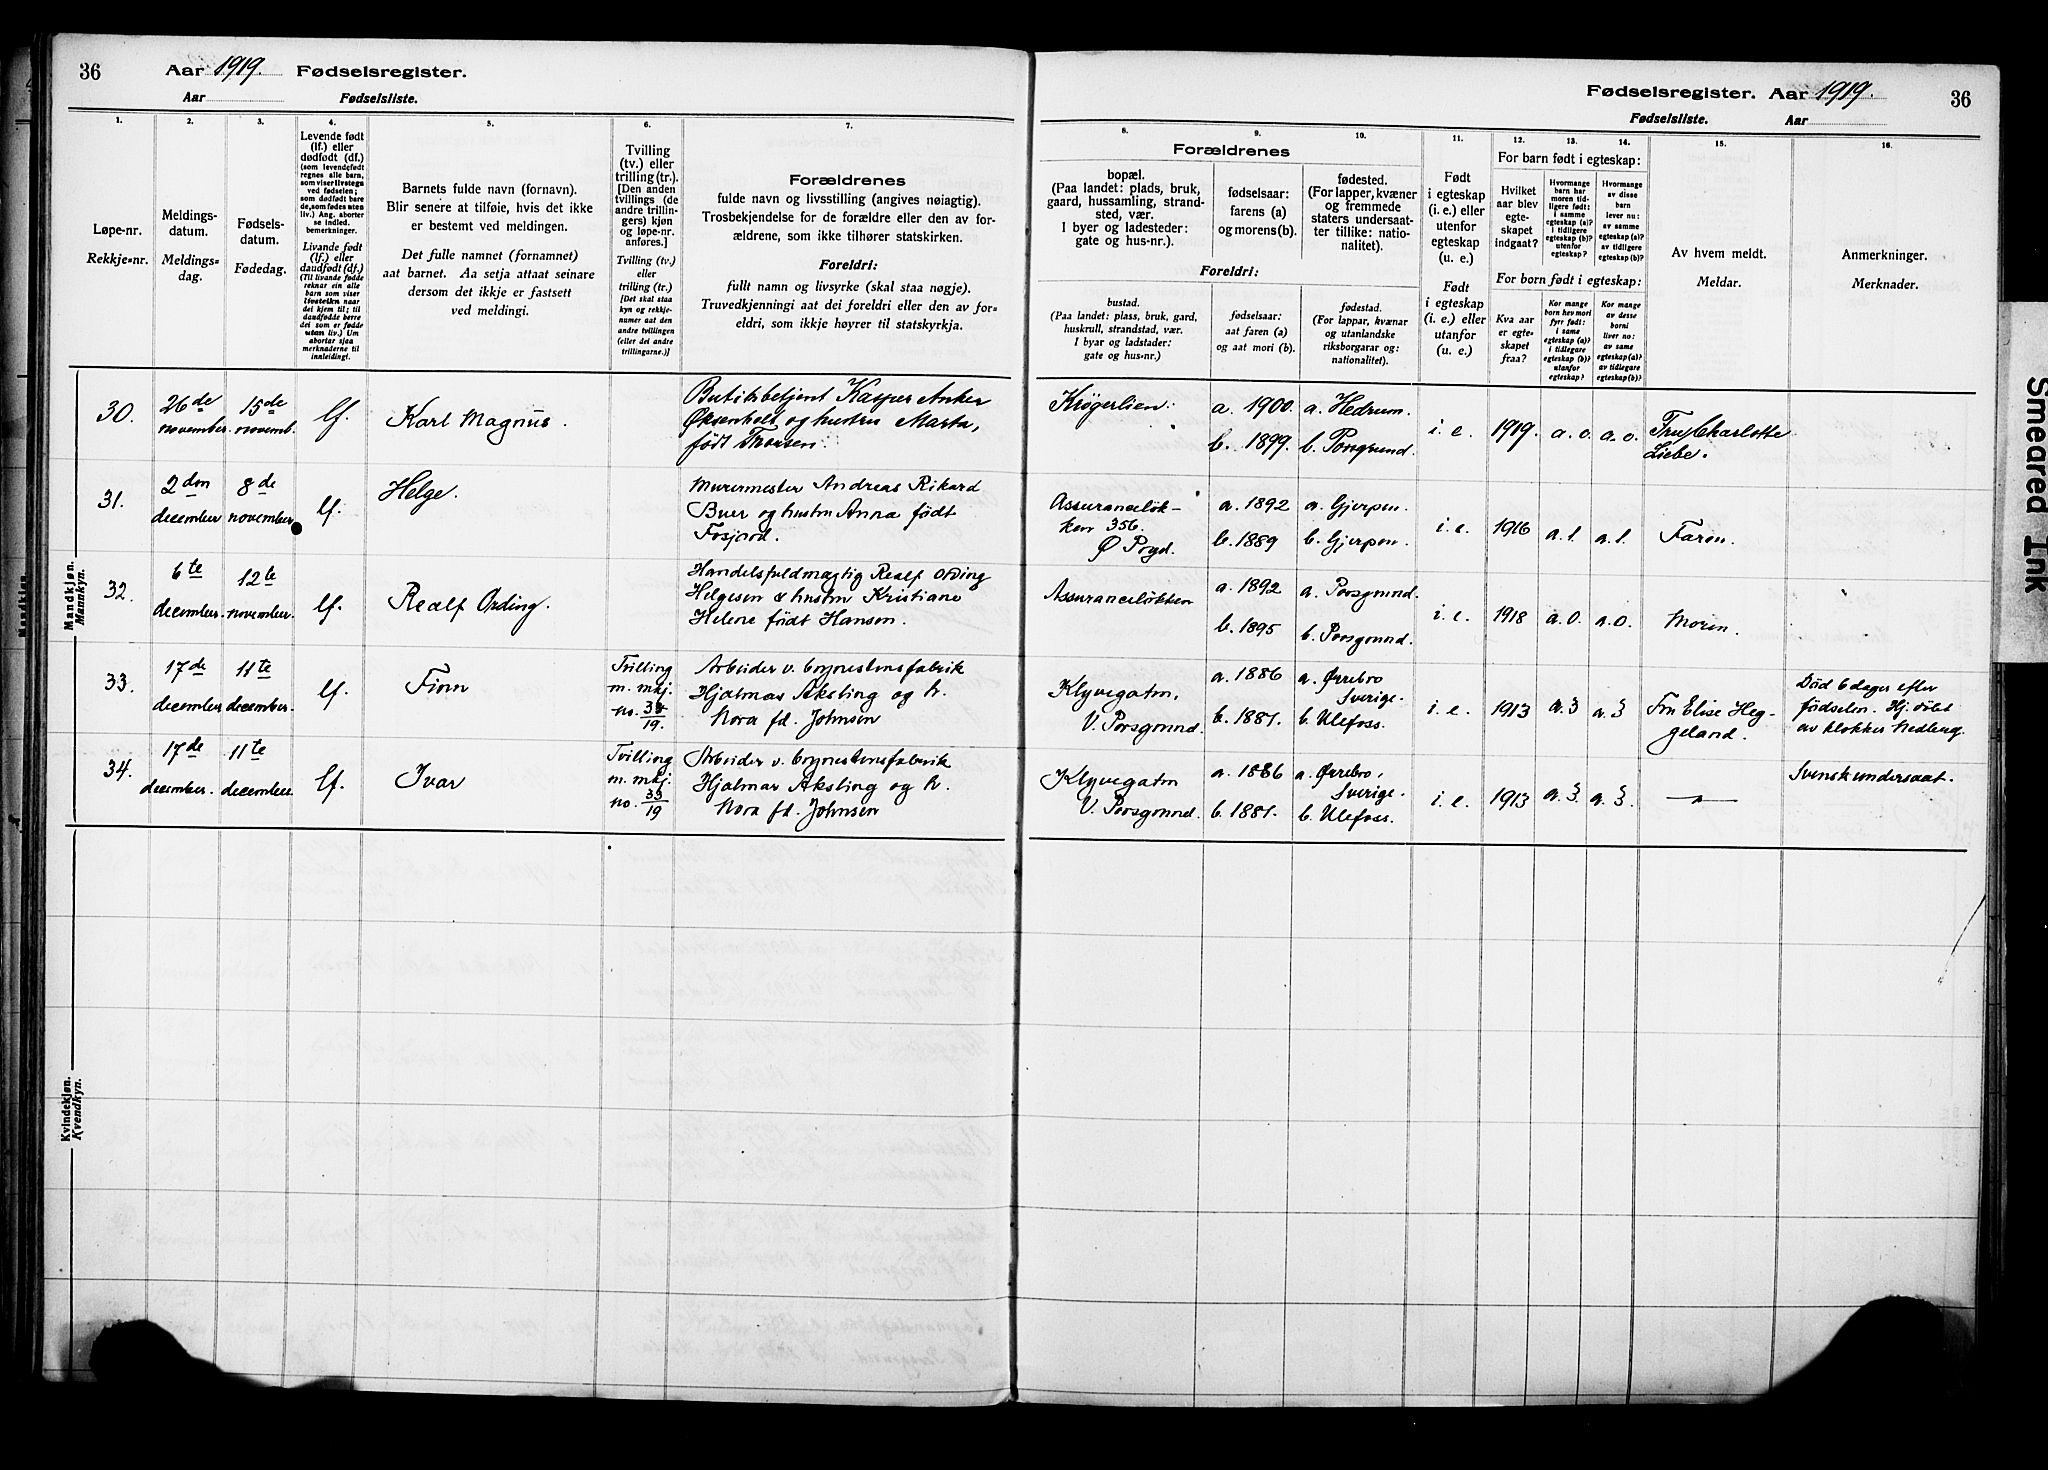 36
Aar 1919. Fødselsregister.
Aar Fødselsliste.
Fødselsregister. Aar 1919.
36
Fødselsliste. Aar
1.
Løpe-nr.
Rekkje-nr.
2.
Meldings-
datum.
Meldings-
dag.
3.
Fødsels-
datum.
Fødedag.
4.
Levende født
(lf.) eller
dødfødt (df.)
(som levendefødt
regnes alle barn,
som viser livstegn
ved fødselen;
som dødfødt bare
de, som fødes uten
liv.) Ang. aborter
se indled.
bemerkninger.
Livande født
(lf.) eller
daudfødt (df.)
(Til livande fødde
reknar ein alle
barn som viser
livsteikn naar
dei kjem til; til
daudfødde berre
dei som er fødde
utan liv.) Um
abortar sjaa
merknaderne til
innleidingi.
5.
Barnets fulde navn (fornavn).
Blir senere at tilføie, hvis det ikke
er bestemt ved meldingen.
Det fulle namnet (fornamnet)
aat barnet. Aa setja attaat seinare
dersom det ikkje er fastsett
ved meldingi.
6.
Tvilling
(tv.) eller
trilling (tr.).
[Den anden
tvillings (de
andre trillin-
gers) kjøn
og løpe-nr.
anføres.]
Tvilling (tv.)
eller
trilling (tr.)
[Det skal staa
kyn og rekkje-
numer aat den
andre tvillingen
(eller dei andre
trillingarne.)]
7.
Forældrenes
fulde navn og livsstilling (angives nøiagtig).
Trosbekjendelse for de forældre eller den av for-
ældrene, som ikke tilhører statskirken.
Foreldri:
fullt namn og livsyrke (skal staa nøgje).
Truvedkjenningi aat dei foreldri eller den av for-
eldri, som ikkje høyrer til statskyrkja.
8.
Forældrenes
bopæl.
(Paa landet: plads, bruk,
gaard, hussamling, strand-
sted, vær.
I byer og ladesteder:
gate og hus-nr.).
Foreldri:
bustad.
(Paa landet: plass, bruk, gard,
huskrull, strandstad, vær.
I byar og ladstader:
gate og hus-nr.)
9.
fødselsaar:
farens (a)
og morens (b).
fødselsaar:
aat faren (a)
og aat mori (b).
10.
fødested.
(For lapper, kvæner
og fremmede
staters undersaat-
ter tillike: natio-
nalitet).
fødestad.
(For lappar, kvænar
og utanlandske
riksborgarar og:
nationalitet).
11.
Født
i egteskap
(i. e.) eller
utenfor
egteskap
(u. e.)
Født
i egteskap
(i. e.) eller
utanfor
(u. e.)
12. 13. 14.
For barn født i egteskap:
Hvilket
aar blev
egte-
skapet
indgaat?
Hvormange
barn har
moren tid-
ligere født:
i samme
egteskap (a)?
i tidligere
egteskap (b)?
utenfor
egteskap?
Hvormange
av disse
barn
lever nu:
av samme
egteskap (a)?
av tidligere
egteskap (b)?
For born født i egteskap:
Kva aar
er egte-
skapet
fraa?
Kor mange
born hev mori
fyrr født:
i same
egteskap (a)?
i tidlegare
egteskap (b)?
utanfor
egteskap?
Kor mange
av desse
borni
liver no:
av same
egteskap (a)?
av tidlegare
egteskap (b)?
15.
Av hvem meldt.
Meldar.
16.
Anmerkninger.
Merknader.
Mandkjøn.
Mannkyn.
30.
26de
november.
15de
novemb.
lf.
Karl Magnus.
Butikbetjent Kasper Anker
Oksenholt og hustru Marta,
født Thorsen.
Krøgerlien.
a. 1900.
b. 1899.
a. Hedrum.
b. Porsgrund.
i. e.
1919.
a. o.
a. o.
Fru Charlotte
Liebe.
31.
2den
december
8de
november
lf.
Helge.
Murermester Andreas Rikard
Buer og hustru Anna født
Fosjord.
Assuranceløk-
ken 356.
Ø Porgd.
a. 1892
b. 1889
a. Gjerpen.
b. Gjerpen.
i. e.
1916
a. 1.
a. 1.
Faren.
32.
6te
december.
12te
november.
lf.
Realf Ording.
Handelsfuldmægtig Realf Ording
Helgesen & hustru Kristiane
Helene født Hansen.
Assuranceløkken
a. 1892
b. 1895
a. Porsgrund.
b. Porsgrund.
i. e.
1918
a. o.
a. o.
Moren.
33.
17de
december
11te
december.
lf.
Finn
Tvilling
m. mkj.
no. 34/19.
Arbeider v. brynestensfabrik
Hjalmar Aksling og h.
Nora fd. Johnsen
Klyvegaten,
V. Porsgrund.
a. 1886
b. 1881.
a. Ørrebro
Sverige.
b. Ulefoss.
i. e.
1913
a. 3
a. 3
Fru Elise Heg-
geland.
Død 6 dager efter
fødselen. Hj.døbt
av klokker Nedberg.
34.
17de
december.
11te
december.
lf.
Ivar
Tvilling
m. mkj.
no. 33/19
Arbeider v. brynestensfabrik
Hjalmar Aksling og h.
Nora fd. Johnsen
Klyvegaten
V. Porsgrund.
a. 1886
b. 1881.
a. Ørrebro,
Sverige.
b. Ulefoss.
i. e.
1913
a. 3.
a. 3.
— " —
Svensk undersaat.
Kvindekjøn.
Kvendkyn.
Smeared Ink